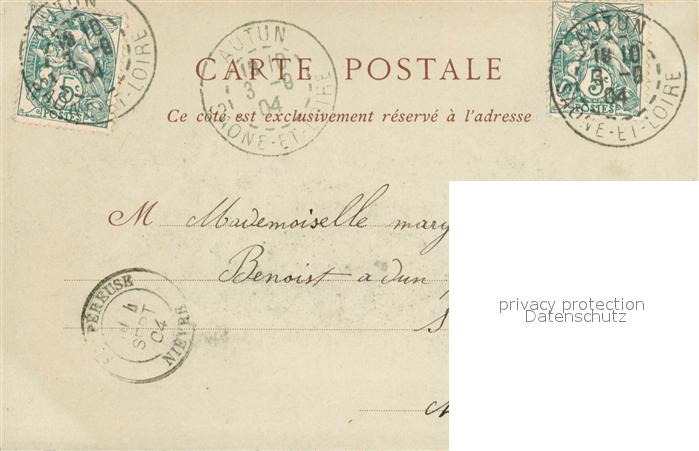 AUTUN
18 10
3 -9
04
SAONE-ET-LOIRE
5c
POSTES
AUTUN
3 -9
04
SAONE-ET-LOIRE
AUTUN
18 10
3 -9
04
SAONE-ET-LOIRE
5c
POSTES
CARTE POSTALE
Ce côté est exclusivement réservé à l'adresse
M Mademoiselle marg
Benoist a dun
PÉREUSE
4
SEPT
04
NIEVRE
privacy protection
Datenschutz